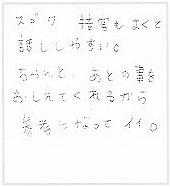 スゴク 接客もよくて
話ししやすい。
ちゃんと、あとの事を
おしえてくれるから
参考になって イイ。